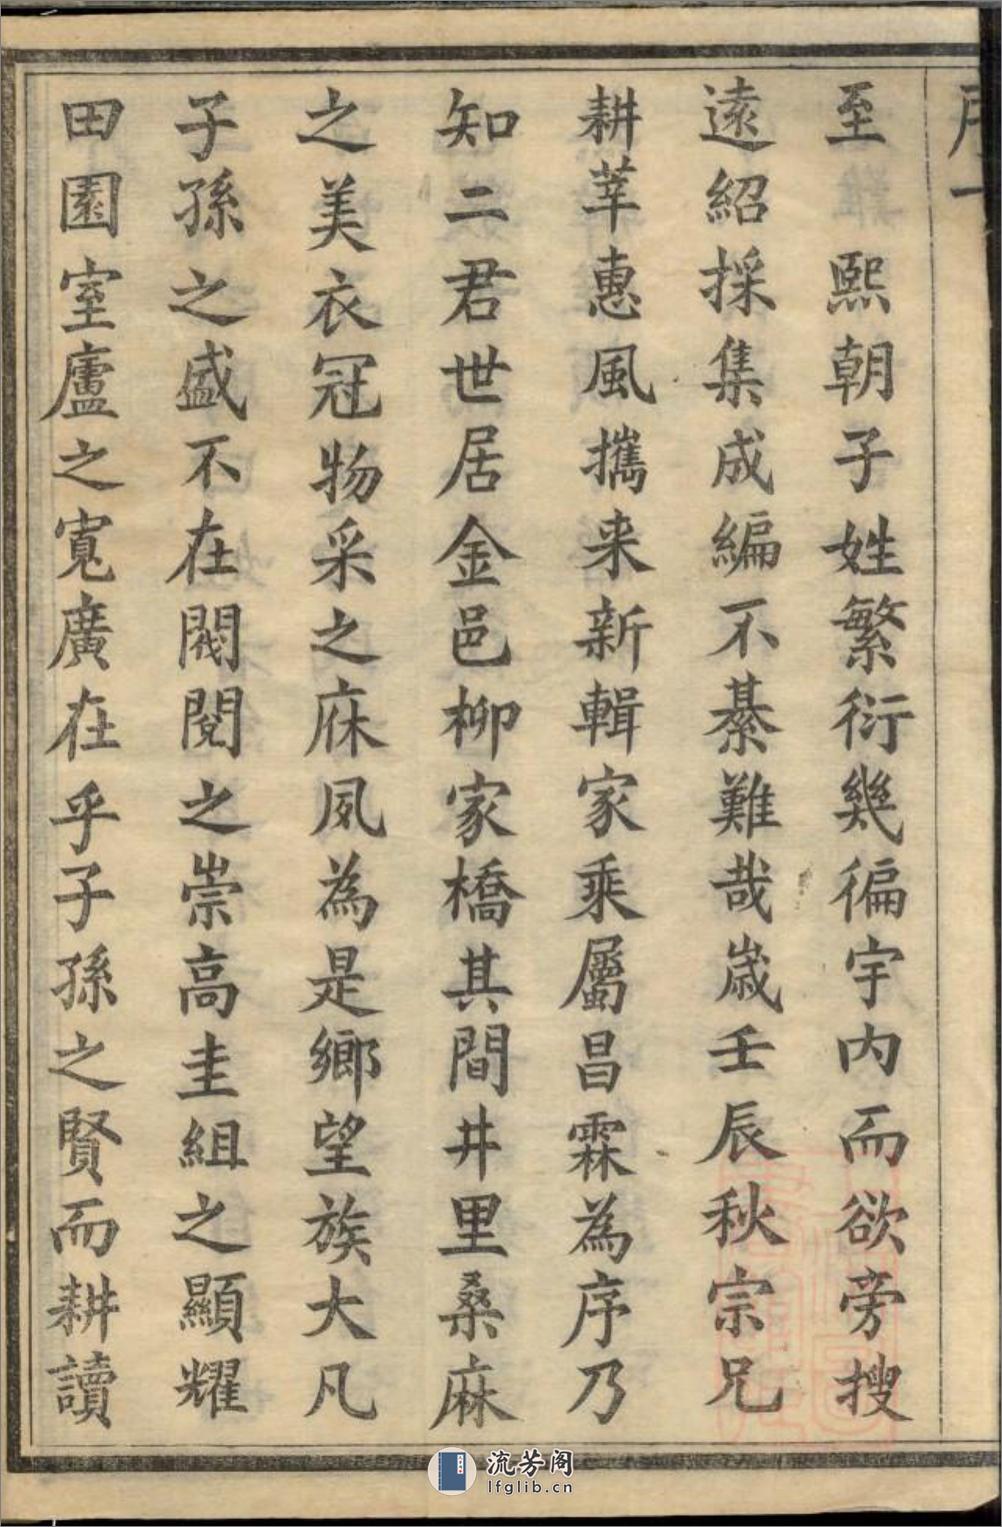 至熙朝子姓繁衍幾徧宇内而欲旁搜
遠紹採集成編不綦難哉歲壬辰秋宗兄
耕莘惠風攜来新輯家乘屬昌霖為序乃
知二君世居金邑柳家橋其間井里桑麻
之美衣冠物采之庥夙為是鄉望族大凡
子孫之盛不在閥閱之崇高圭組之顯耀
田園室廬之寬廣在乎子孫之賢而耕讀
流芳阁
lfglib.cn